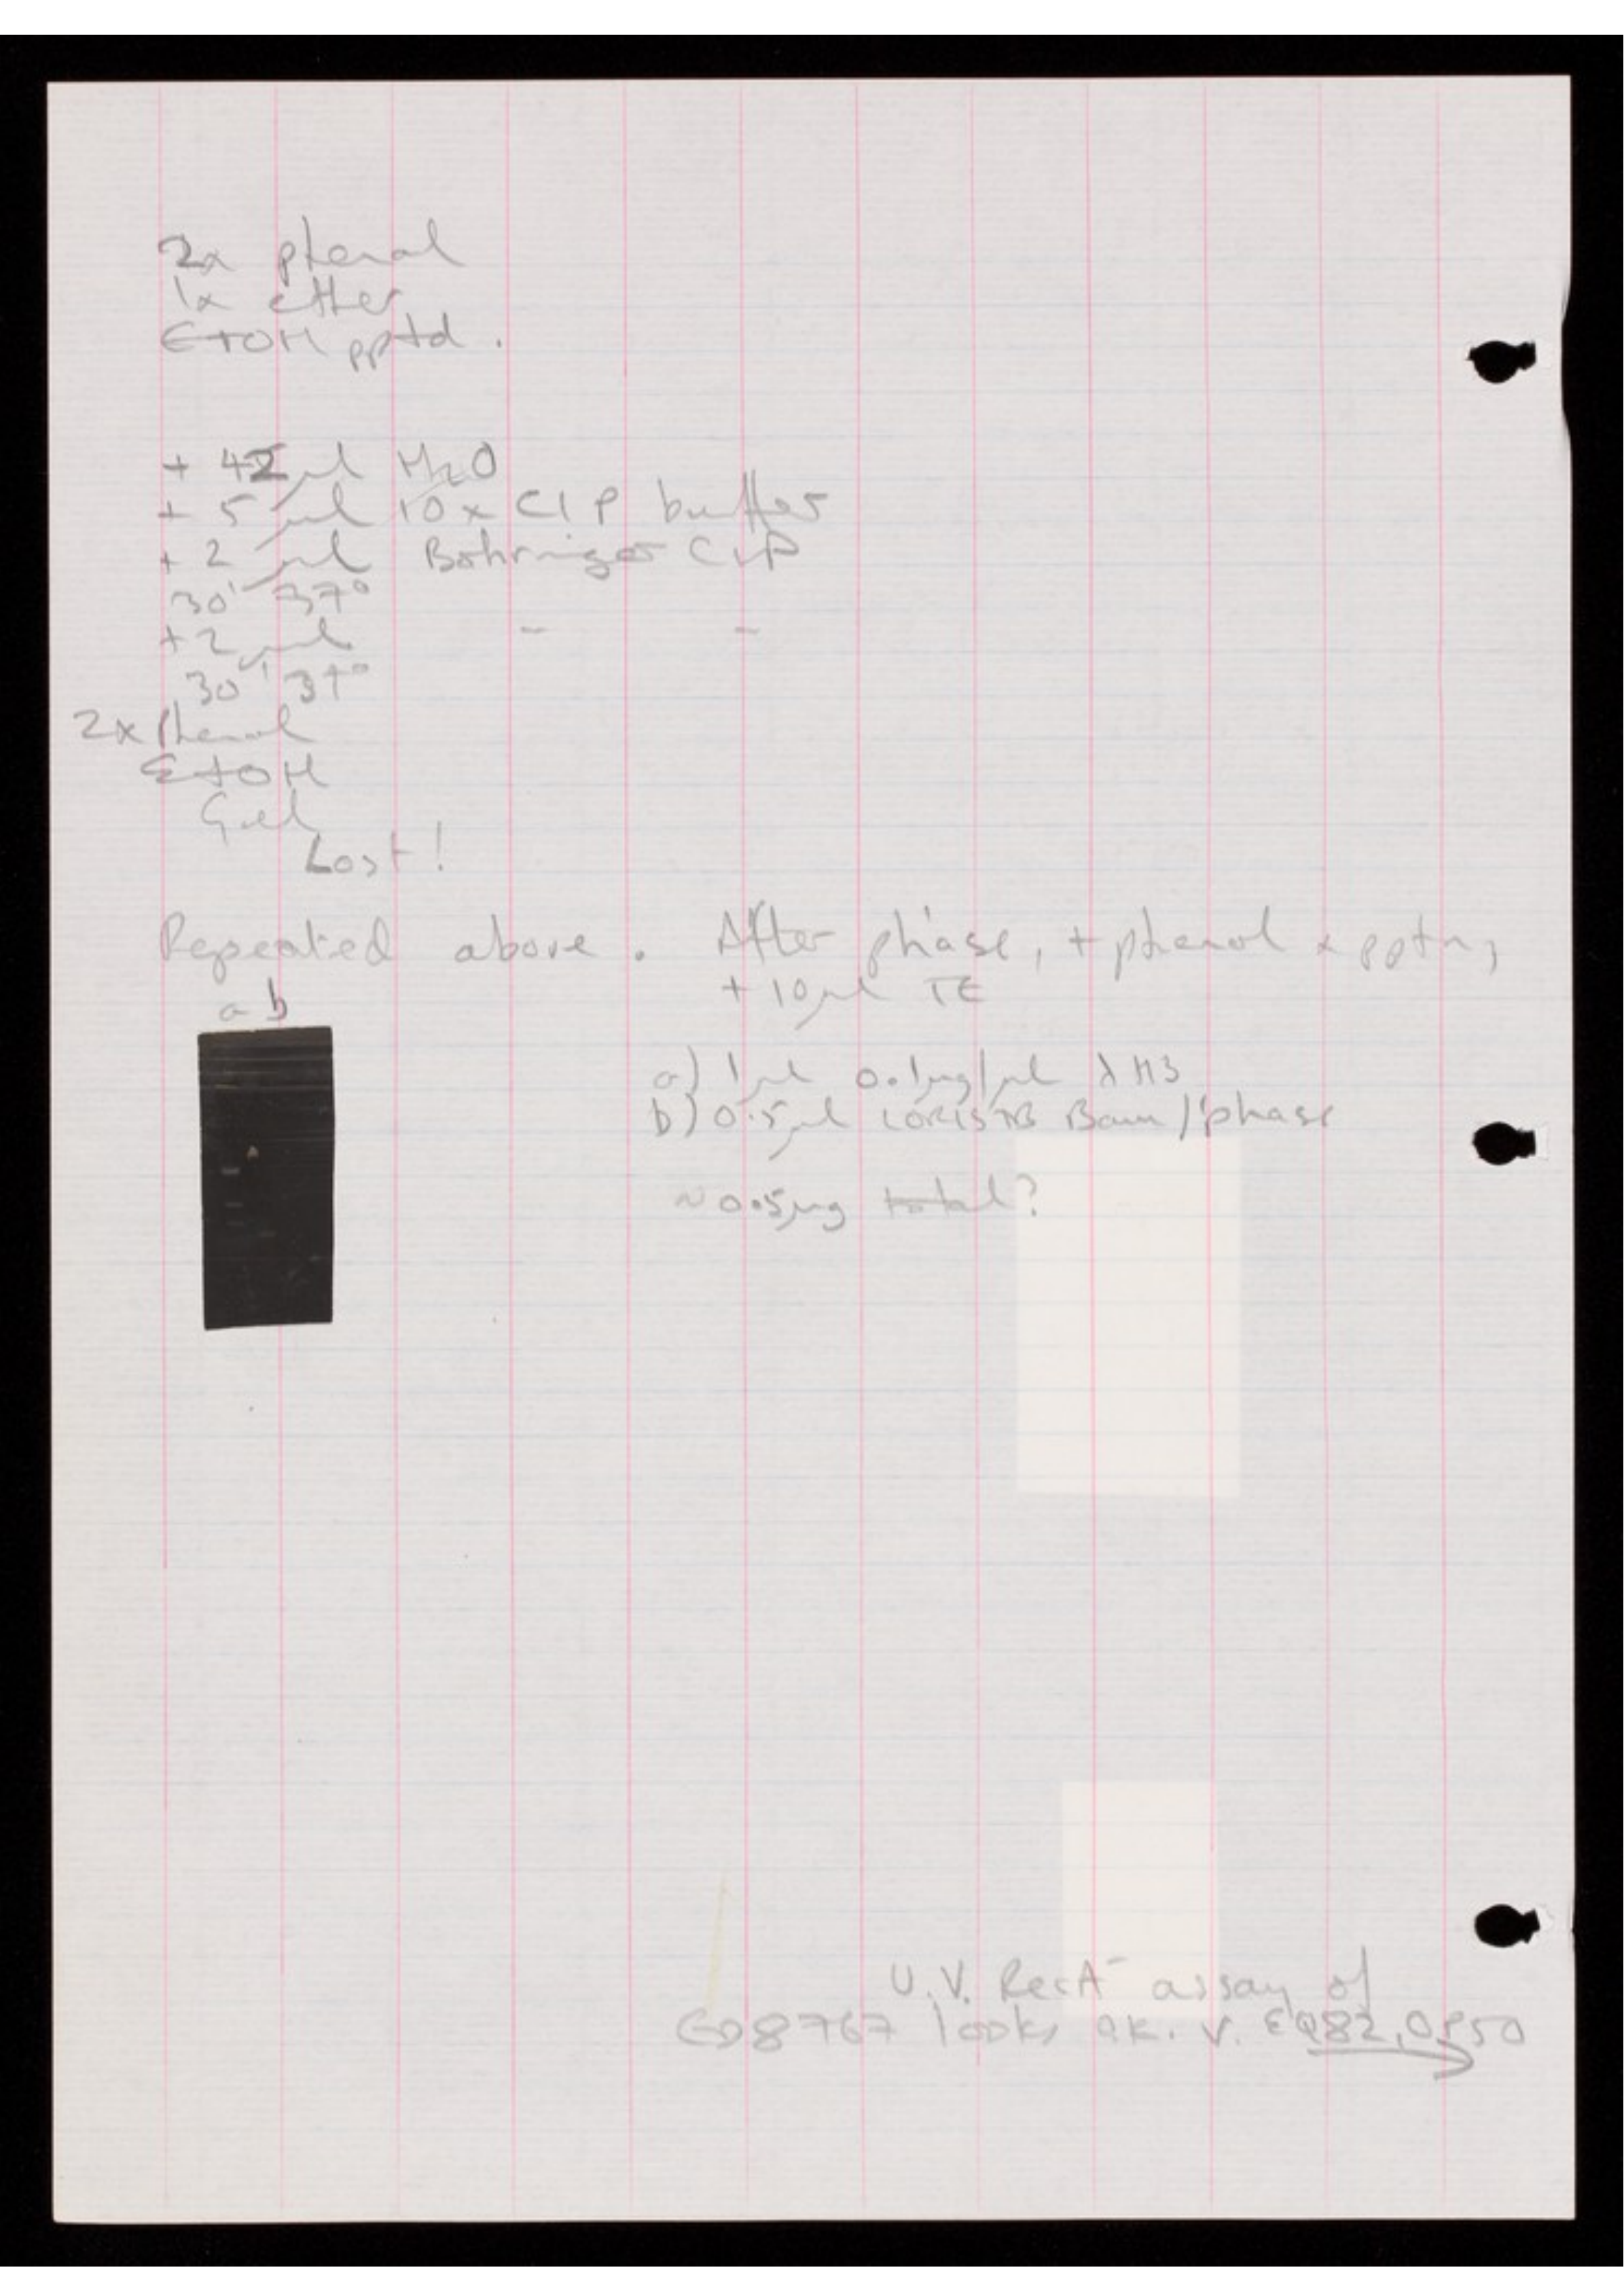 2x phenol
1x ether
EtOH pptd.
+ 42 µl H2O
+ 5 µl 10x CIP buffer
+ 2 µl Bohringer CIP
30' 37°
+2 µl - -
30' 37°
2x Phenol
EtOH
Gel
Lost!
Repeated above. After p'hase, + phenol + pptn,
+ 10µl TE
a b
a) 1µl 0.1µg/µl λ H3
b) 0.5µl LORIST B Bam/p'hase
~0.5µg total?
U.V. RecA- assay of
ED8767 looks o.k. v. EQ82,